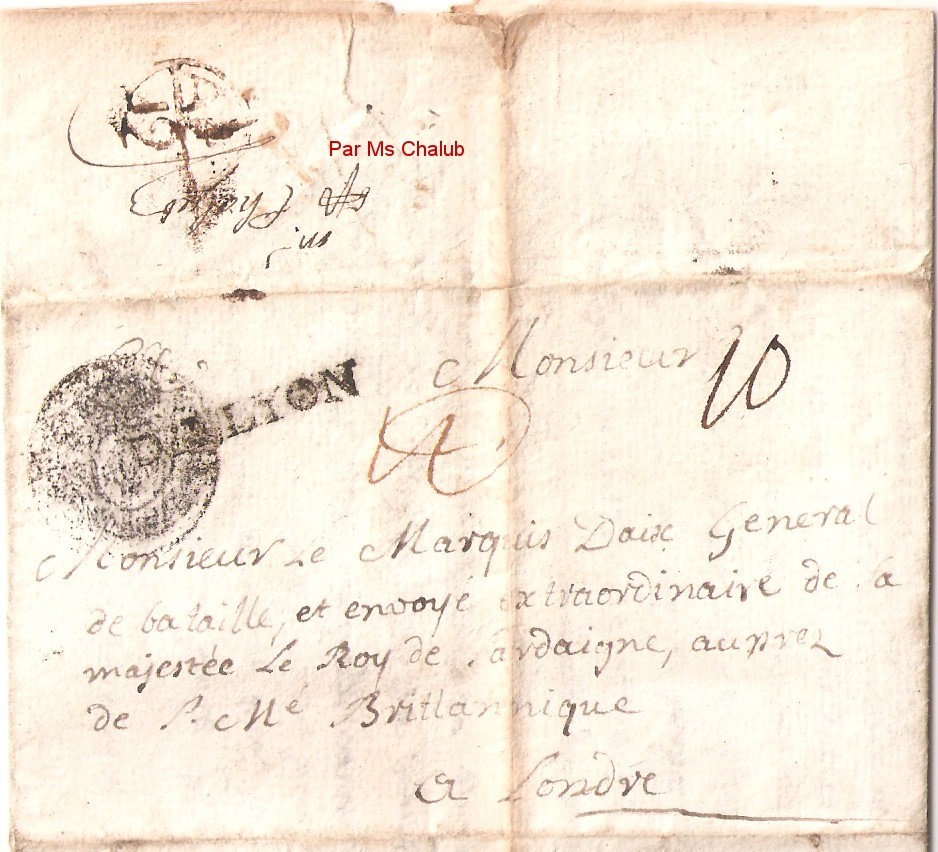 Par Ms Chalub
DE LYON
Monsieur
10
Monsieur Le Marquis Daix General
de bataille, et envoyé extraordinaire de sa
majestée Le Roy de sardaigne, auprez
de S. Mé Brittannique
a Londre